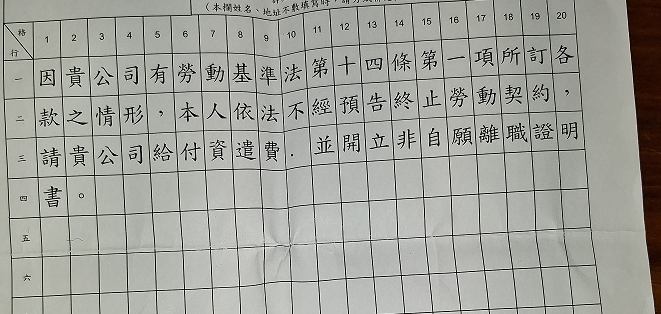 （本欄姓名、地址不敷填寫時，請
格 行 1 2 3 4 5 6 7 8 9 10 11 12 13 14 15 16 17 18 19 20
一 因貴公司有勞動基準法第十四條第一項所訂各
二 款之情形，本人依法不經預告終止勞動契約，
三 請貴公司給付資遣費．並開立非自願離職證明
四 書。
五
六